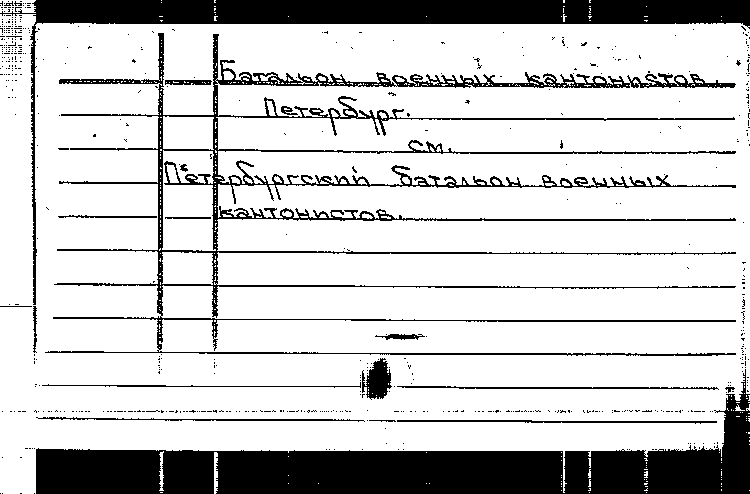 Батальон военных кантонистов.
Петербург.
см.
Петербургский батальон военных
кантонистов.